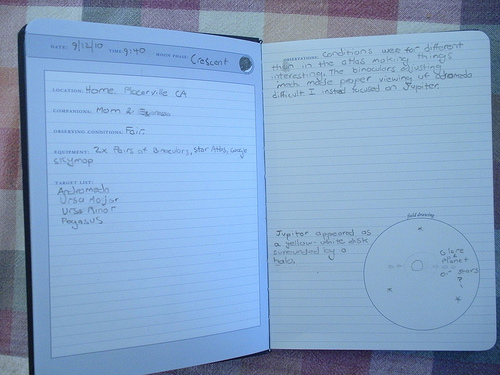 DATE: 9/12/10 TIME: 9:40 MOON PHASE Crescent
LOCATION: Home Placerville CA
COMPANIONS: Mom &
OBSERVING CONDITIONS: Fair
EQUIPMENT: 2x Pairs of Binoculars, Star Atlas, Google
skymap
TARGET LIST:
Andromedh
Ursa Major
Ursa Minor
Pegasus
OBSERVATIONS: conditions were far different
than in the atlas making things
interesting. The binoculars adjusting
mech made proper viewing of Andromeda
difficult I insted focused on Jupiter
field drawing
Jupiter appeared as
a yellow-white disk
surrounded by a
halo.
Glare
of
Planet
or stars
?